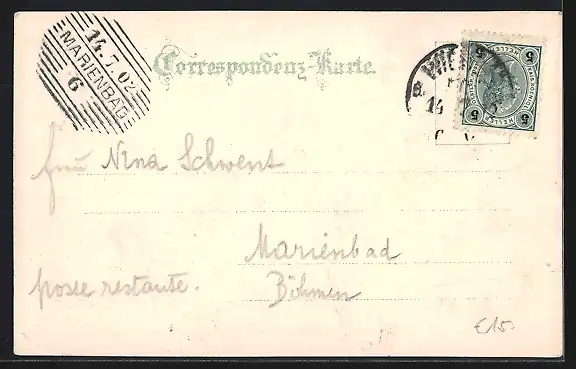 14.7.02
MARIENBAD
6
Correspondenz-Karte.
WIEN
14
5 HELLER 5
Frau Nina Schwent
Marienbad
poste restante.
Böhmen
€15.-